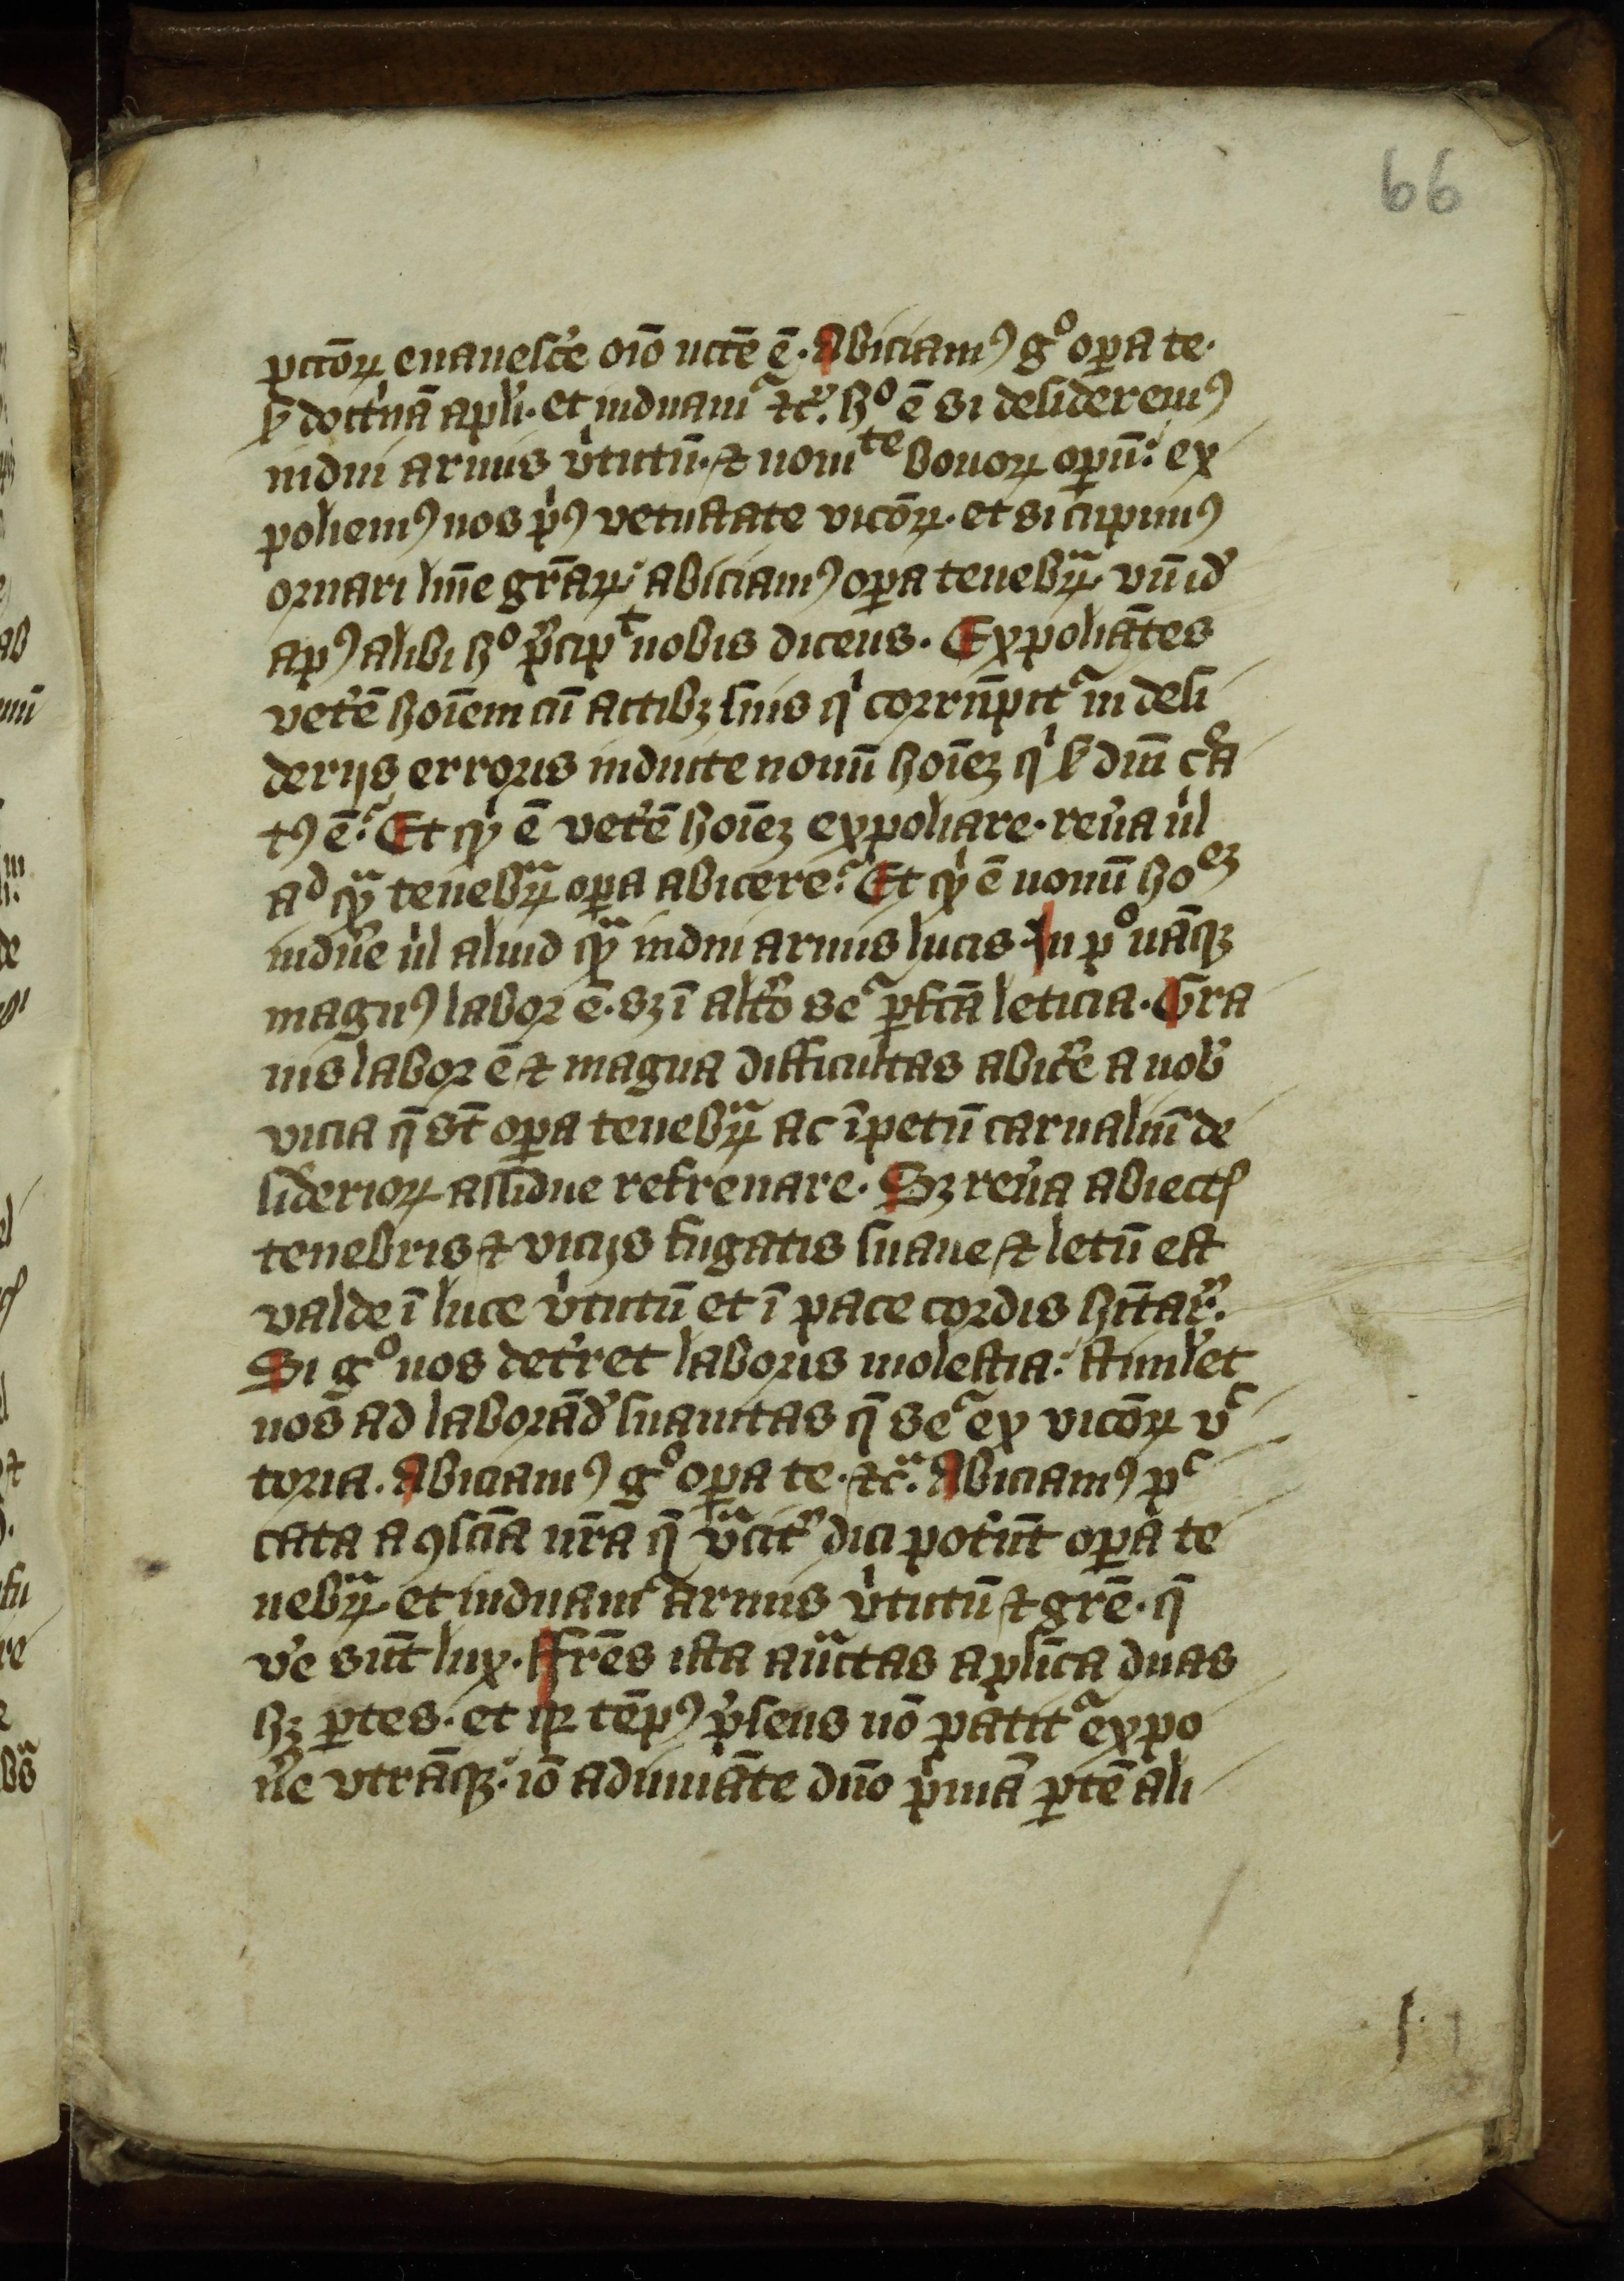 66
pctōꝝ euanesc̄e oīo nccē̄ ē. Abiciamꝰ gͦ oꝑa te.
ẜ doct̓nā apli. et induamᷣ ⁊c̓. hͦ ē si desideremꝰ
indui armis v̓tutū. ⁊ nouiᵗᵉ bonoꝝ oꝑū: ex
poliemꝰ nos p̓ꝰ vetustate vicōꝝ. et si cupimꝰ
ornari lūīe gr̄aꝝ: abiciamꝰ oꝑa tenebᷓꝝ. vn̄ id̓
apꝰ alibi hͦ p̓cipᵗ nobis dicens. Expoliātes
vet̓ē hoīem cū actibꝫ suis qͥ corrūpitᷣ in desi
derijs erroris induite nouū hoīeꝫ qͥ ẜ dm̄ cͦa
tꝰ ē. Et qͥ ē vet̓ē hoīeꝫ expoliare. reu̓a n̓l
ad qᷓ tenebᷓꝝ oꝑa abicere. Et qͥ ē nouū hoᵉꝫ
indu̓e n̓l aliud qᷓ indui armis lucis. In pͦ nāqꝫ
magnꝰ labor ē. sꝫ ī alt̓o seᷣ ꝑfc̄ā leticia. Gra
uis labor ē ⁊ magna difficultas abic̓e a nob̓
vicia q̄ st̄ oꝑa tenebᷓꝝ ac īpetū carnaliū de
sid̓erioꝝ assidue refrenare. Sꝫ reu̓a abiectꝭ
tenebris ⁊ vicijs fugatis suaue ⁊ letū est
valde ī luce v̓tutū et ī pace cordis hītar̓.
Si gͦ nos det̓ret laboris molestia: stimul̓et
nos ad laborād̓ suauitas q̄ seᷣ ex vicōꝝ vᶜ
toria. Abiciamꝰ gͦ oꝑa te. ⁊cᷓ. Abiciamꝰ pᶜ
cata a ꝯsciā nr̄a q̄ vᷓcit̓ dici pot̓ūt oꝑa te
nebᷓꝝ. et induamᷣ armis v̓tutū ⁊ gr̄ē. q̄
ve sūt lux. Fr̄es ista auᷓctas aplīca duas
hꝫ ꝑtes. et qꝛ tēpꝰ p̓sens nō patitᷣ expo
n̓e vtrāqꝫ: iō adiuuāte dn̄o p̓mā ꝑtē ali